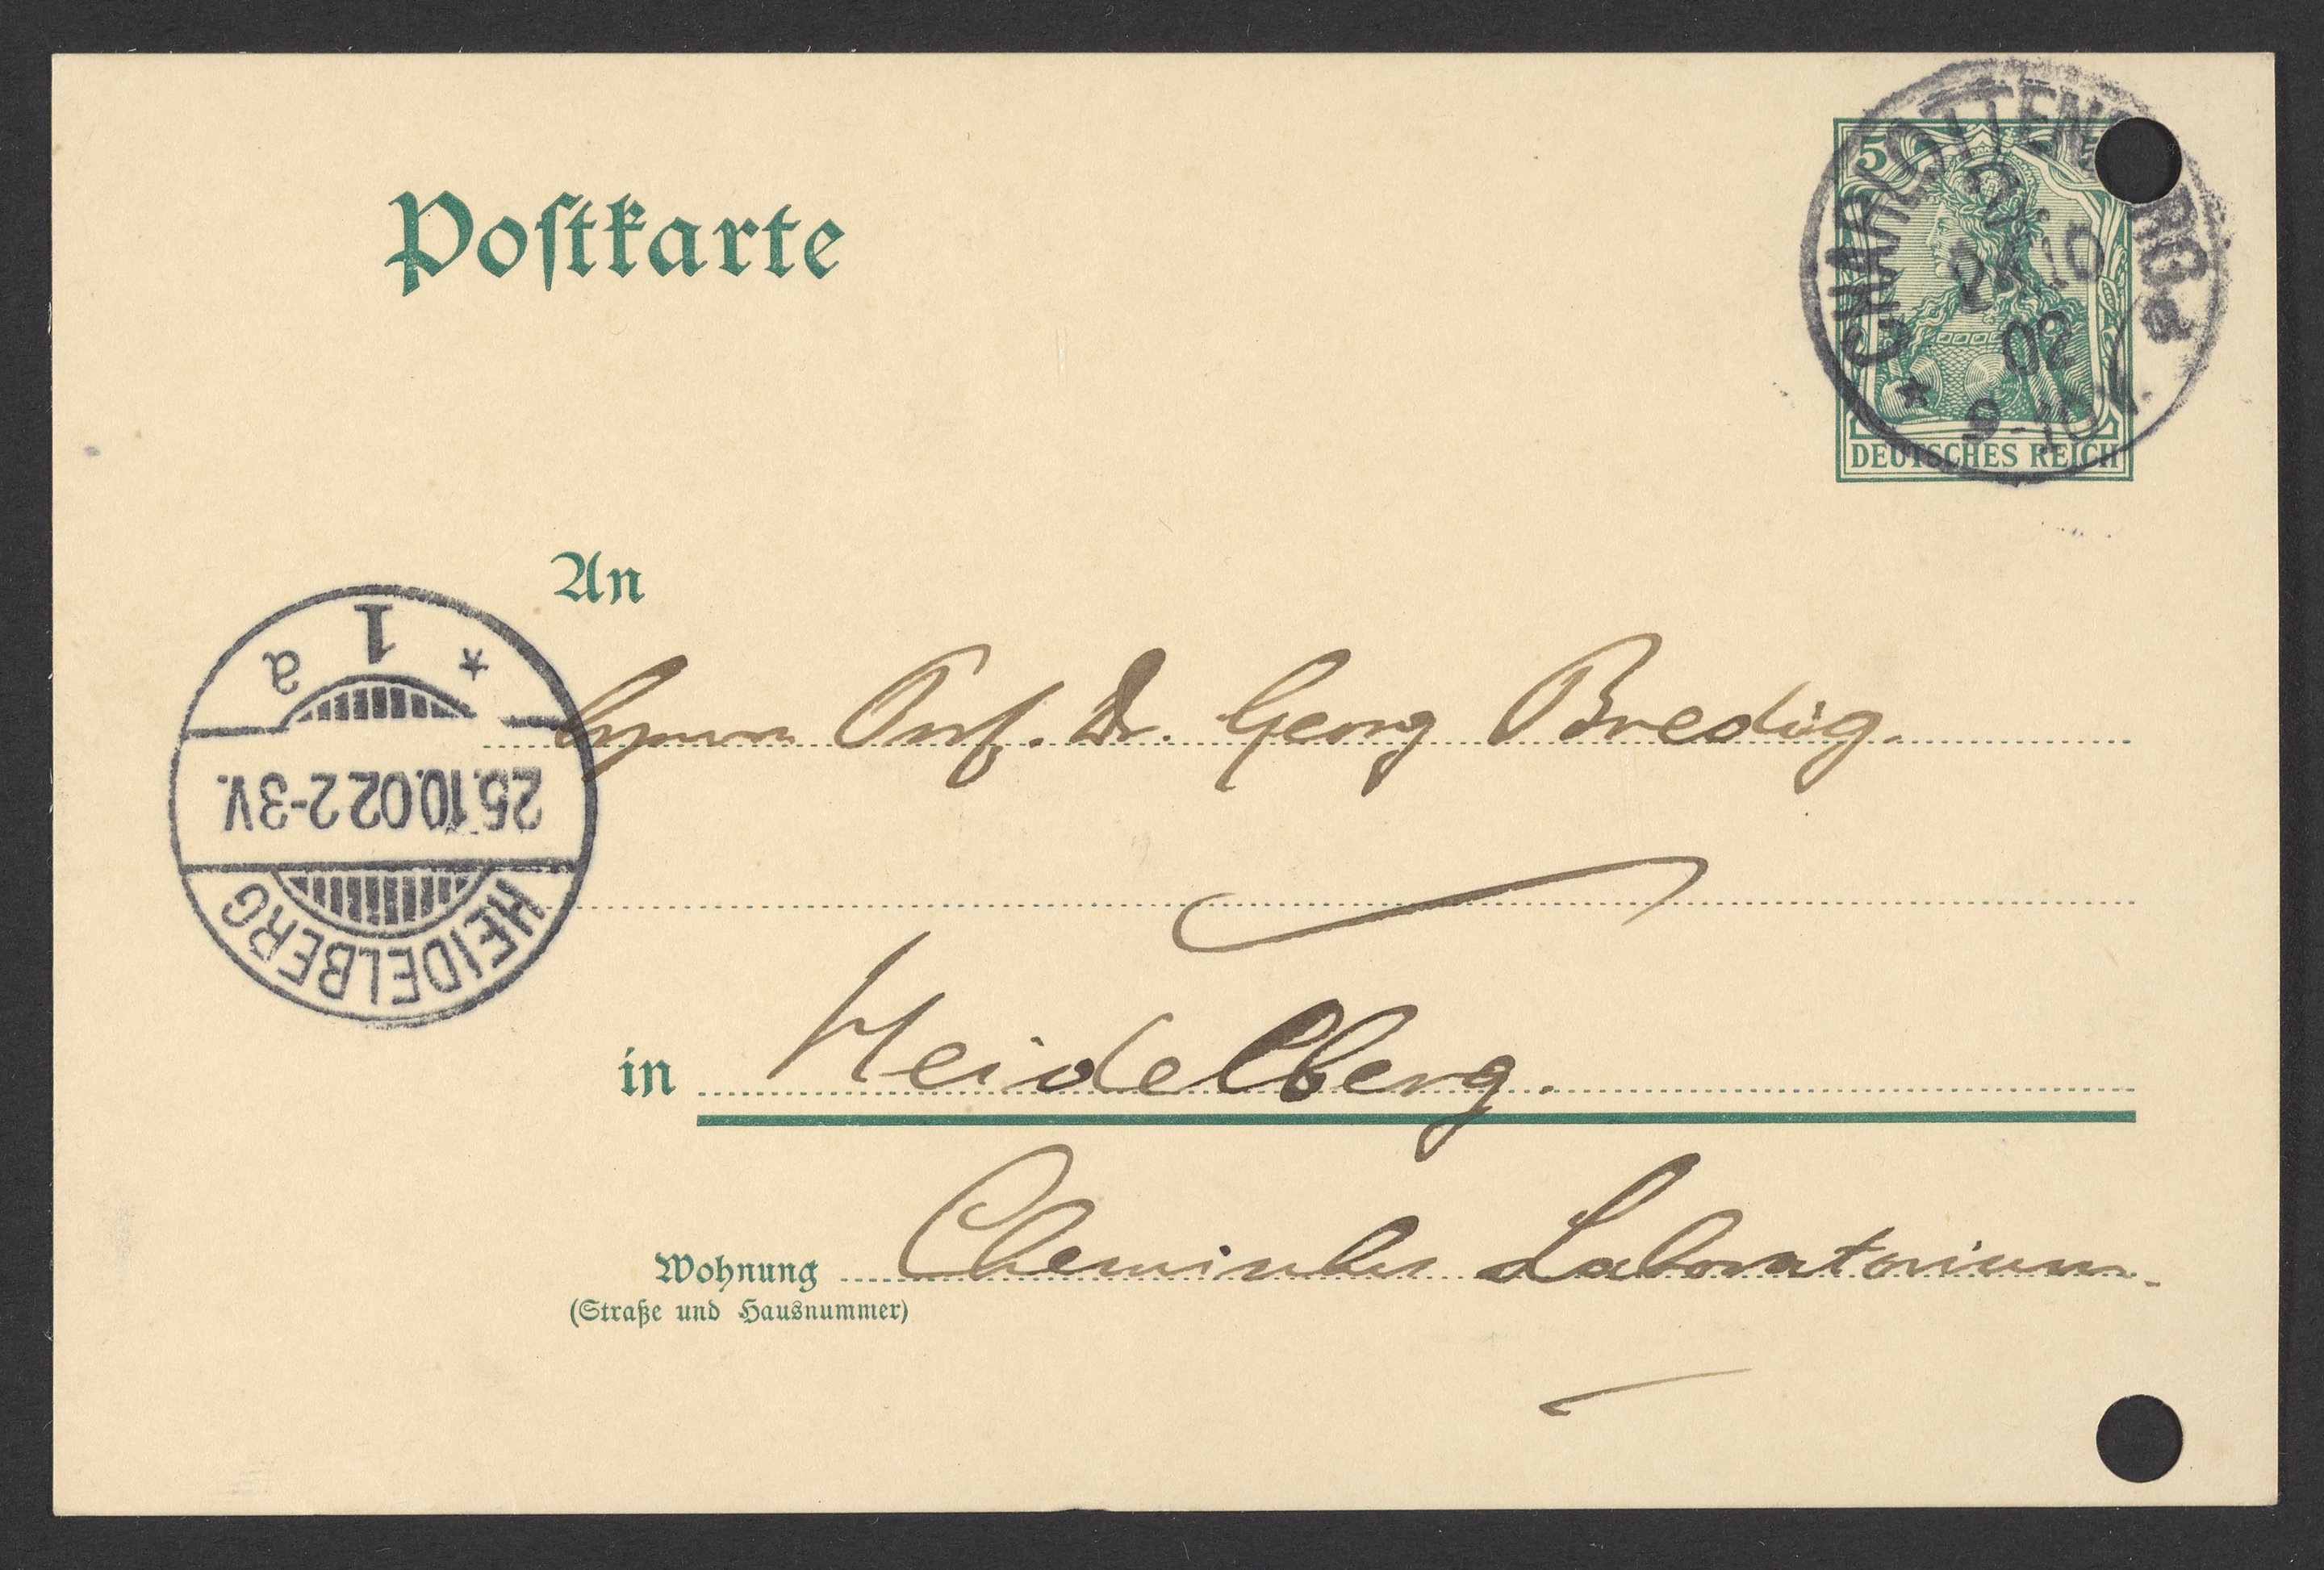 Postkarte
5
CHARLOTTENB RG a
24.10
02
9-10V.
*
DEUTSCHES REICH
An
1
a *
Herrn Prof. Dr. Georg Bredig.
25.10.02 2-3V.
HEIDELBERG
in Heidelberg.
Wohnung Chemisches Laboratorium.
(Straße und Hausnummer)